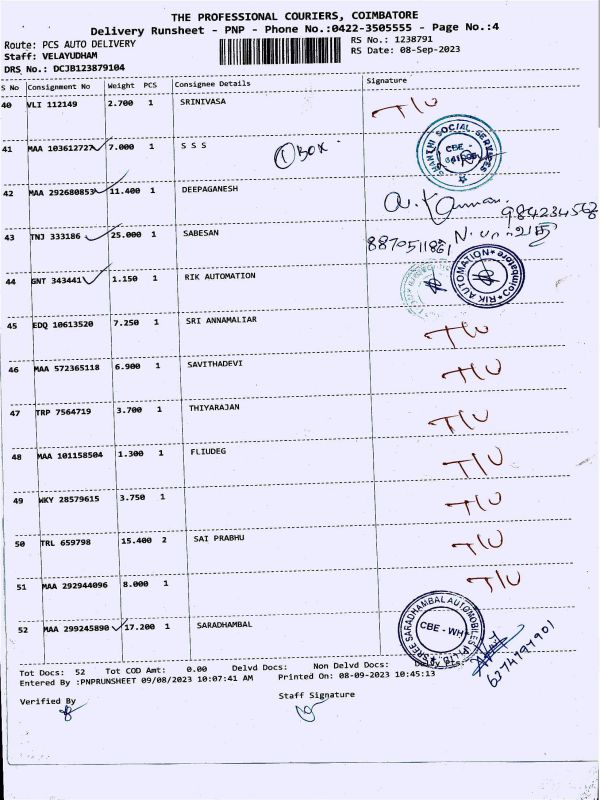 THE PROFESSIONAL COURIERS, COIMBATORE
Delivery Runsheet - PNP - Phone No.:0422-3505555 - Page No.:4
Route: PCS AUTO DELIVERY RS No.: 1238791
Staff: VELAYUDHAM RS Date: 08-Sep-2023
DRS No.: DCJB123879104
S No Consignment No Weight PCS Consignee Details Signature
40 VLI 112149 2.700 1 SRINIVASA T/U
41 MAA 103612727 7.000 1 S S S ① BOX SHANTHI SOCIAL SERVICES CBE -
42 MAA 292680853 11.400 1 DEEPAGANESH
9842234562
43 TNJ 333186 25.000 1 SABESAN 8870511861
44 GNT 343441 1.150 1 RIK AUTOMATION RIK AUTOMATION * Coimbatore *
45 EDQ 10613520 7.250 1 SRI ANNAMALIAR T/U
46 MAA 572365118 6.900 1 SAVITHADEVI T/U
47 TRP 7564719 3.700 1 THIYARAJAN T/U
48 MAA 101158504 1.300 1 FLIUDEG T/U
49 WKY 28579615 3.750 1 T/U
50 TRL 659798 15.400 2 SAI PRABHU T/U
51 MAA 292944096 8.000 1 T/U
52 MAA 299245890 17.200 1 SARADHAMBAL SREE SARADHAMBAL AUTOMOBILES (P) LTD. CBE - WH
6374197901
Tot Docs: 52 Tot COD Amt: 0.00 Delvd Docs: Non Delvd Docs:
Entered By :PNPRUNSHEET 09/08/2023 10:07:41 AM Printed On: 08-09-2023 10:45:13
Verified By Staff Signature